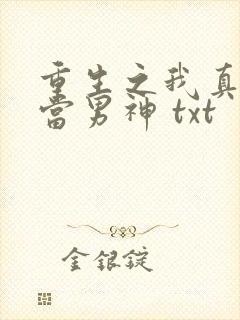 重生之我真
当男神 txt
金银锭